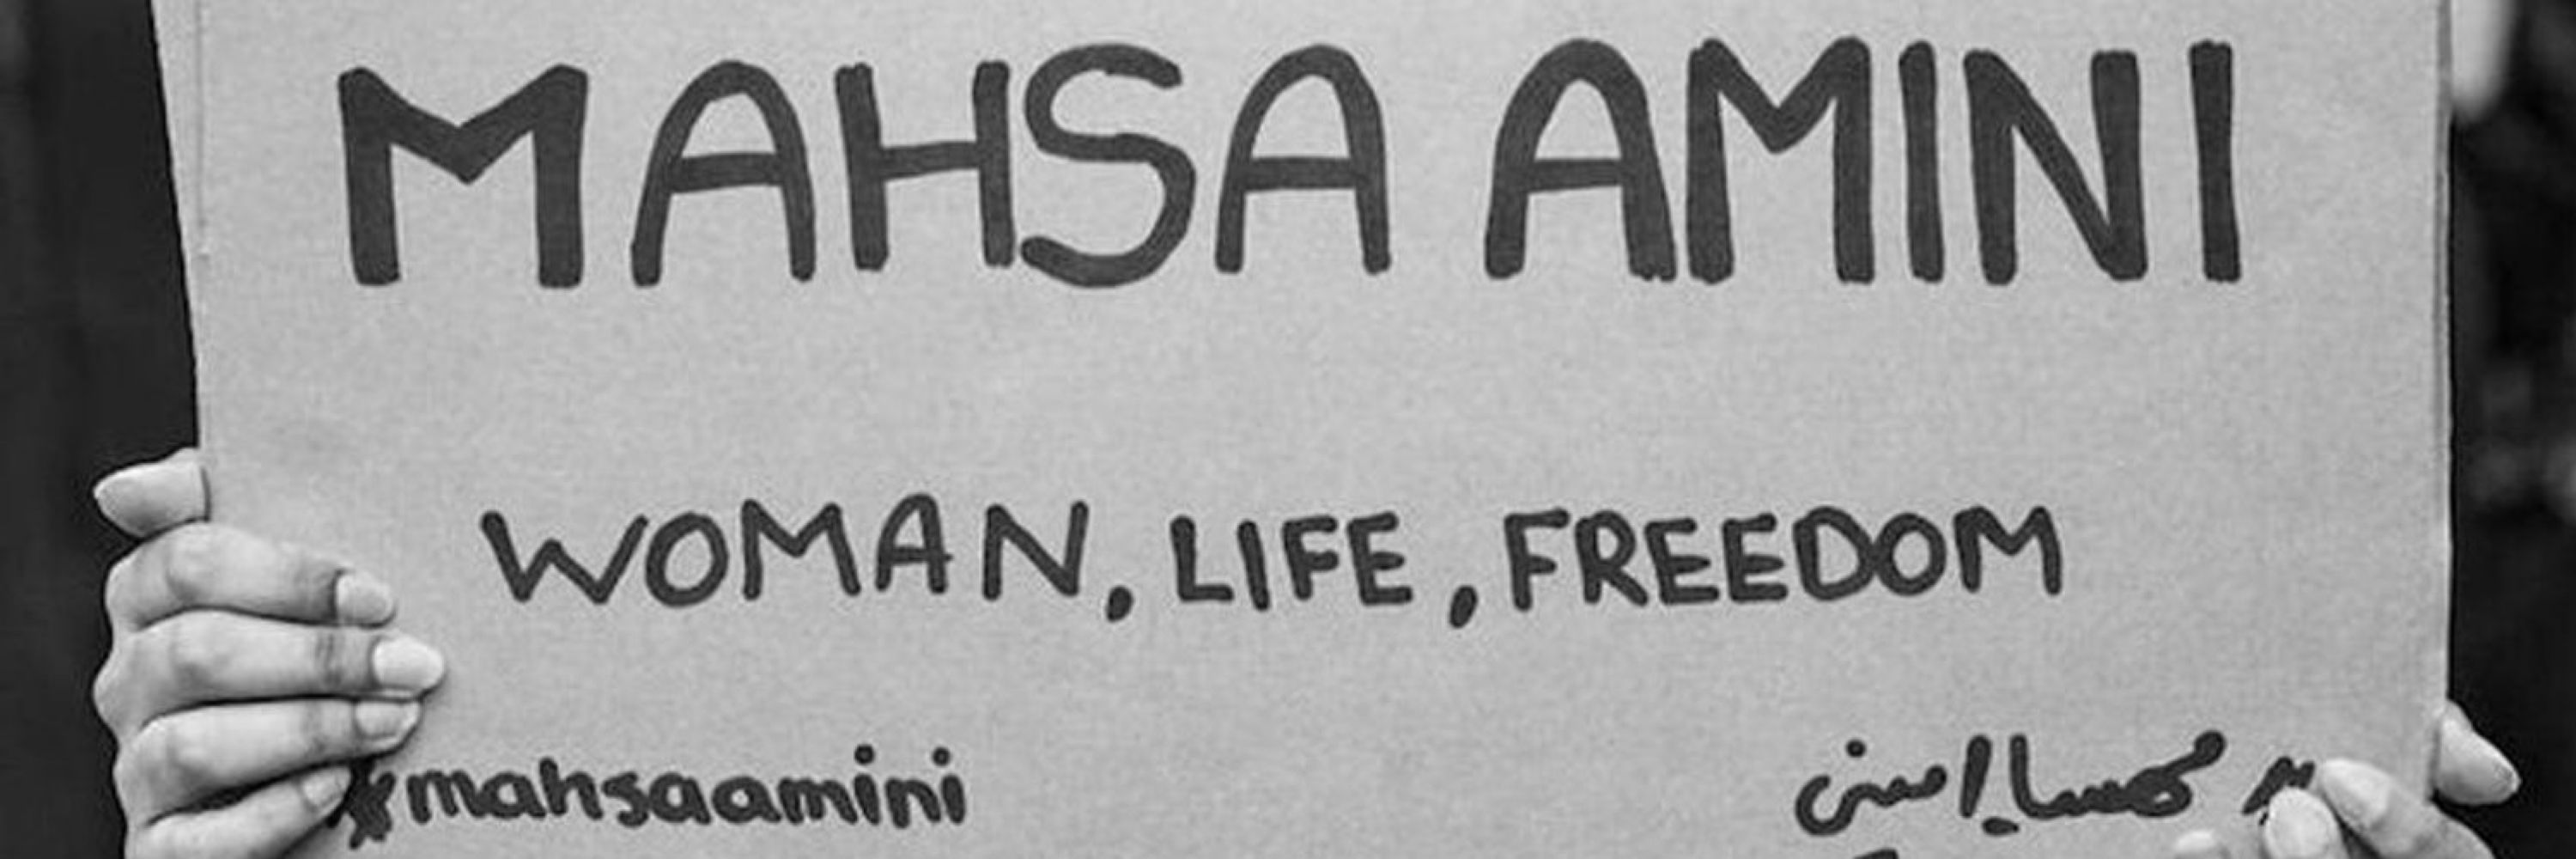 MAHSA AMINI
WOMAN, LIFE, FREEDOM
#mahsaamini